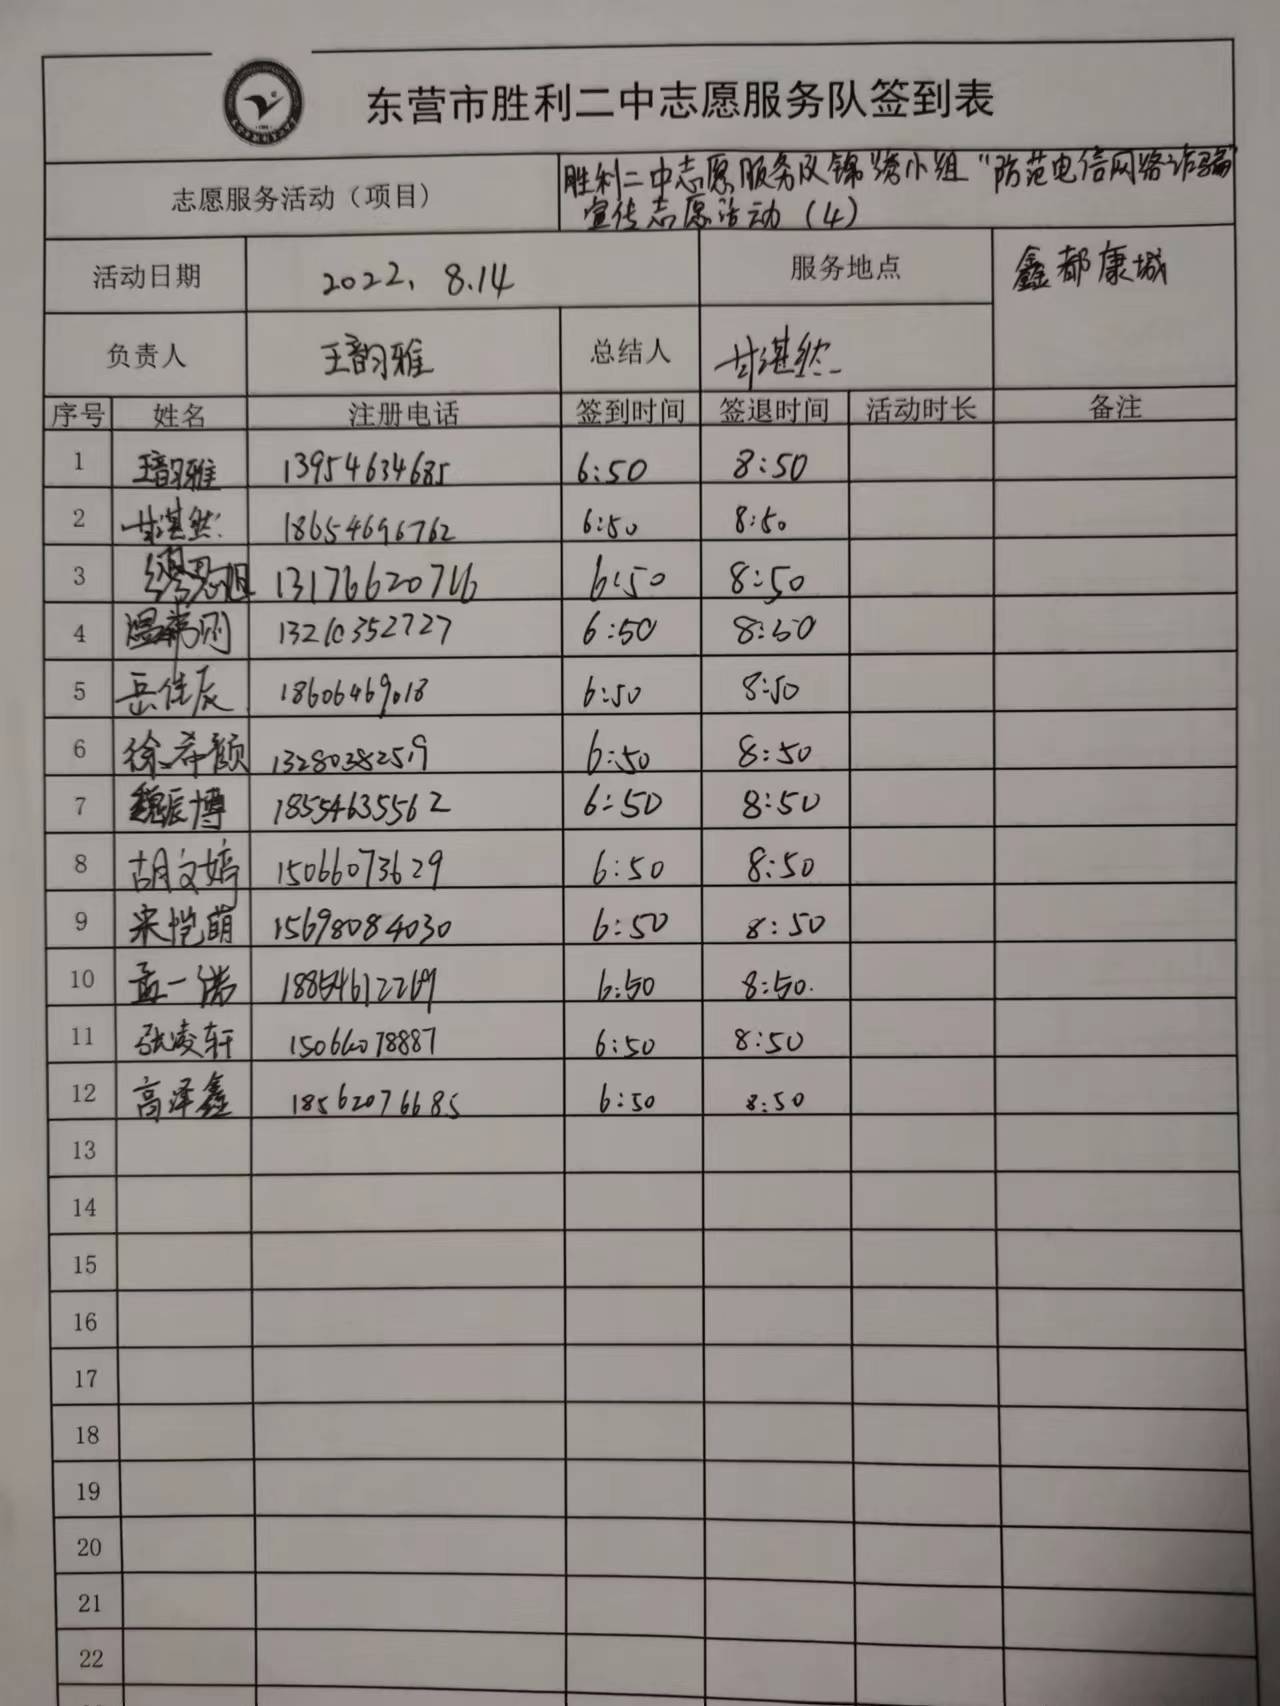 东营市胜利二中志愿服务队签到表
志愿服务活动（项目） 胜利二中志愿服务队锦绣小组“防范电信网络诈骗”
宣传志愿活动（4）
活动日期 2022.8.14 服务地点 鑫都康城
负责人 王韵雅 总结人 甘湛然
序号 姓名 注册电话 签到时间 签退时间 活动时长 备注
1 王韵雅 13954634685 6:50 8:50
2 甘湛然 18654696762 6:50 8:50
3 13176620716 6:50 8:50
4 13210352727 6:50 8:50
5 岳佳辰 18606469018 6:50 8:50
6 徐希颜 13280382519 6:50 8:50
7 魏辰博 18554635562 6:50 8:50
8 胡文婷 15066073629 6:50 8:50
9 宋恺萌 15698084030 6:50 8:50
10 孟一诺 18854612269 6:50 8:50.
11 张凌轩 15066078887 6:50 8:50
12 高泽鑫 18562076685 6:50 8:50
13
14
15
16
17
18
19
20
21
22